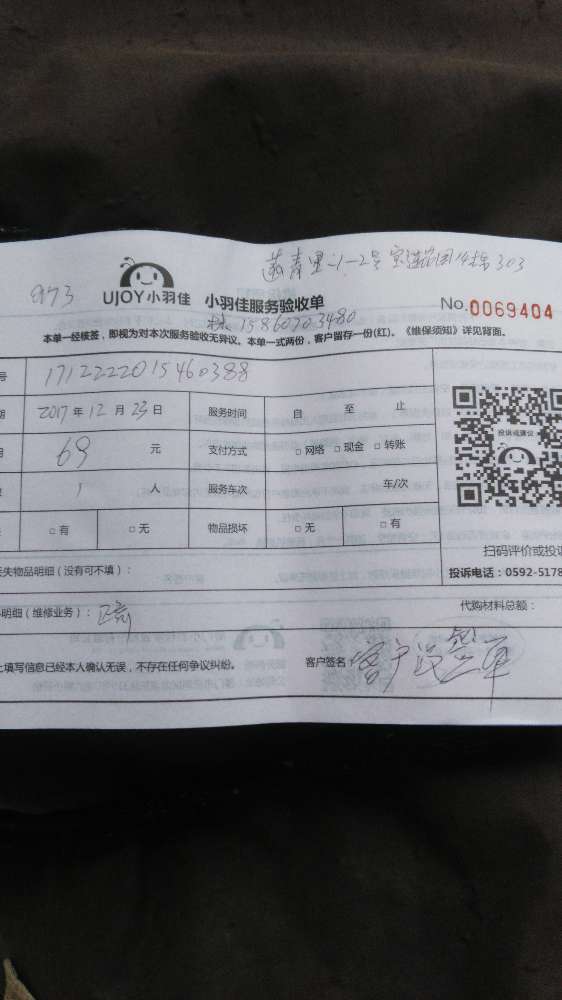 973
UJOY小羽佳
小羽佳服务验收单
No.0069404
本单一经核签，即视为对本次服务验收无异议。本单一式两份，客户留存一份(红)。《维保须知》详见背面。
号 1712222015460388
期 2017年12月23日 服务时间 自 至 止
69 元 支付方式 □网络 □现金 □转账
1 人 服务车次 车/次
□有 □无 物品损坏 □无 □有
投诉或建议
扫码评价或投诉
失物品明细（没有可不填）：
投诉电话：0592-5178
明细（维修业务）：
代购材料总额：
上填写信息已经本人确认无误，不存在任何争议纠纷。
客户签名：客户没签单